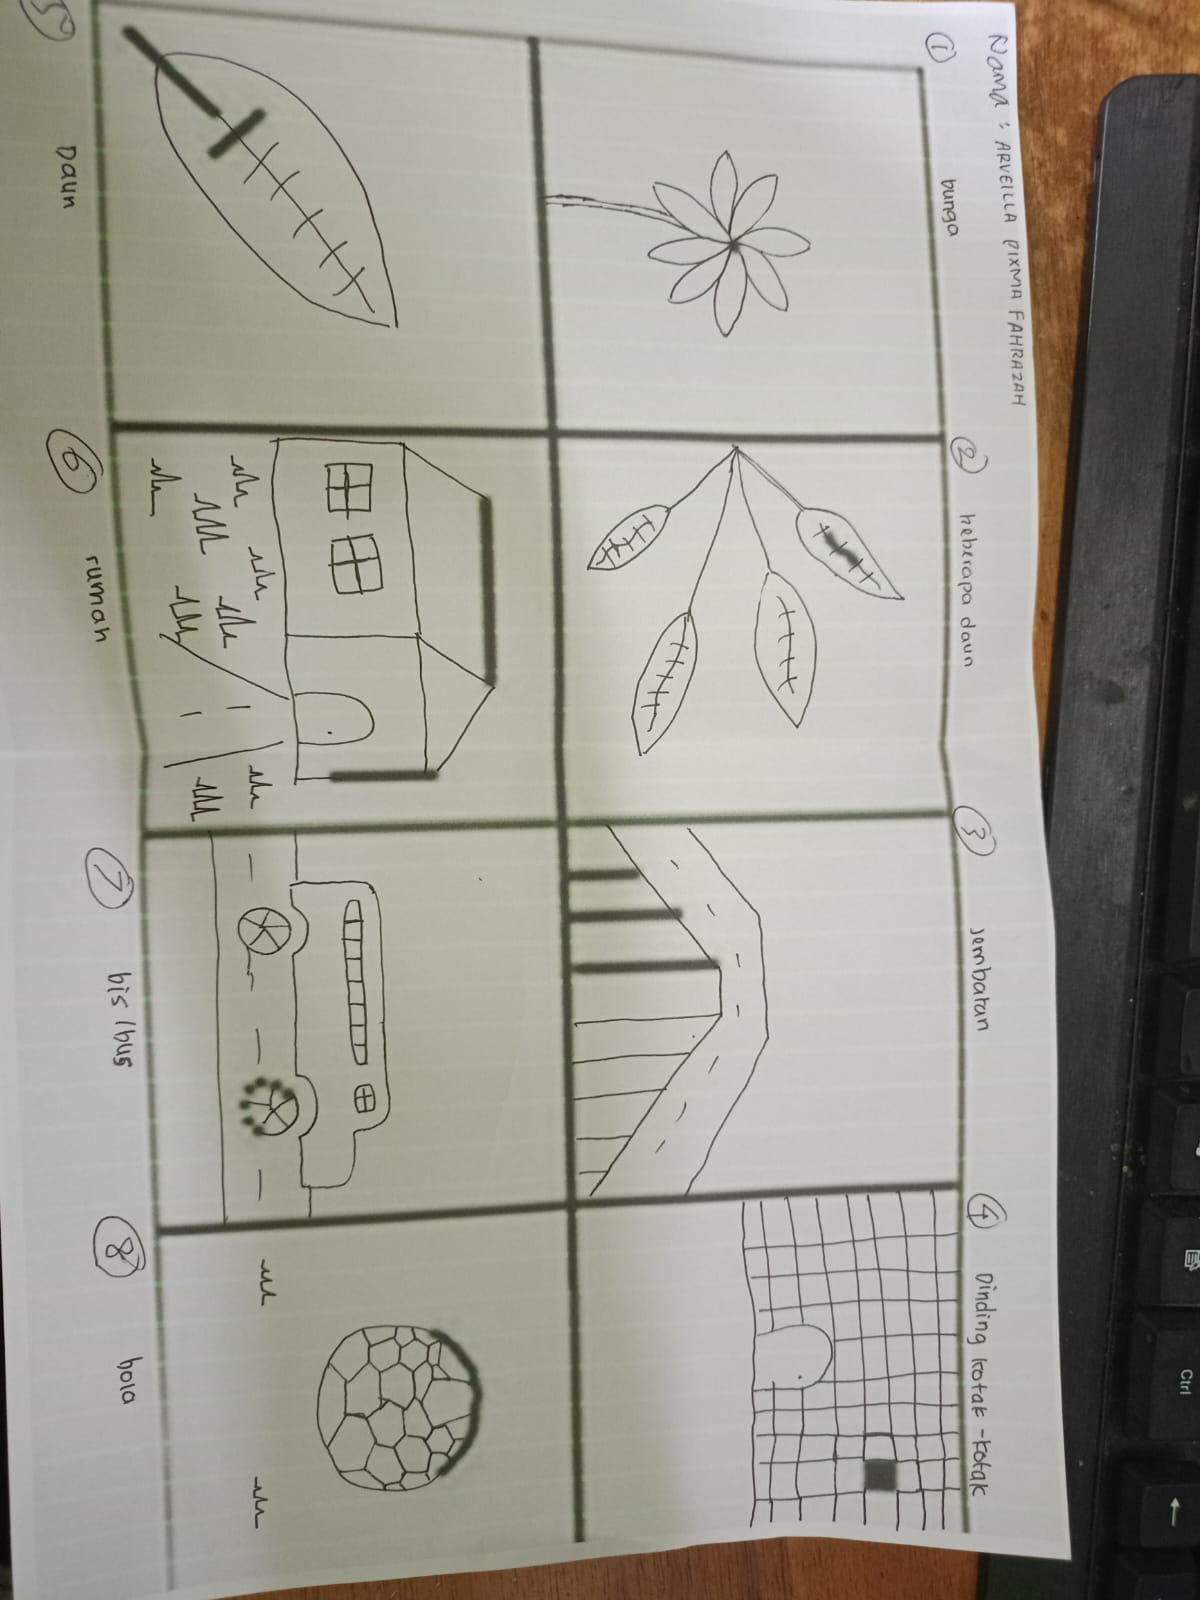 Nama : ARVEILLA PIXMA FAHRAZAH
① bunga
② beberapa daun
③ Jembatan
④ Dinding kotak-kotak
⑤ Daun
⑥ rumah
⑦ bis/bus
⑧ bola
Ctrl